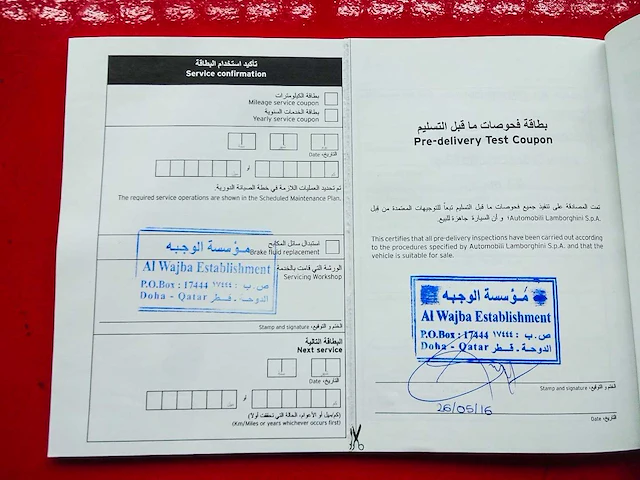 تأكيد استخدام البطاقة
Service confirmation
بطاقة الكيلومترات
Mileage service coupon
بطاقة الخدمات السنوية
Yearly service coupon
التاريخ، Date
أو
تم تحديد العمليات اللازمة في خطة الصيانة الدورية.
The required service operations are shown in the Scheduled Maintenance Plan.
استبدال سائل المكابح
Brake fluid replacement
الورشة التي قامت بالخدمة
Servicing Workshop
مؤسسة الوجبه
Al Wajba Establishment
P.O.Box : 17444 ١٧٤٤٤ : ص.ب
Doha - Qatar الدوحة - قطر
Stamp and signature الختم و التوقيع،
البطاقة التالية
Next service
التاريخ، Date
أو
(كم/ميل أو الأعوام، الحالة التي تحققت أولاً)
(Km/Miles or years whichever occurs first)
بطاقة فحوصات ما قبل التسليم
Pre-delivery Test Coupon
تمت المصادقة على تنفيذ جميع فحوصات ما قبل التسليم تبعاً للتوجيهات المعتمدة من قبل
Automobili Lamborghini S.p.A.؛ و أن السيارة جاهزة للبيع.
This certifies that all pre-delivery inspections have been carried out according
to the procedures specified by Automobili Lamborghini S.p.A. and that the
vehicle is suitable for sale.
مؤسسة الوجبه
Al Wajba Establishment
P.O.Box : 17444 ١٧٤٤٤ : ص.ب
Doha - Qatar الدوحة - قطر
Stamp and signature الختم و التوقيع،
26/05/16
Date، التاريخ،